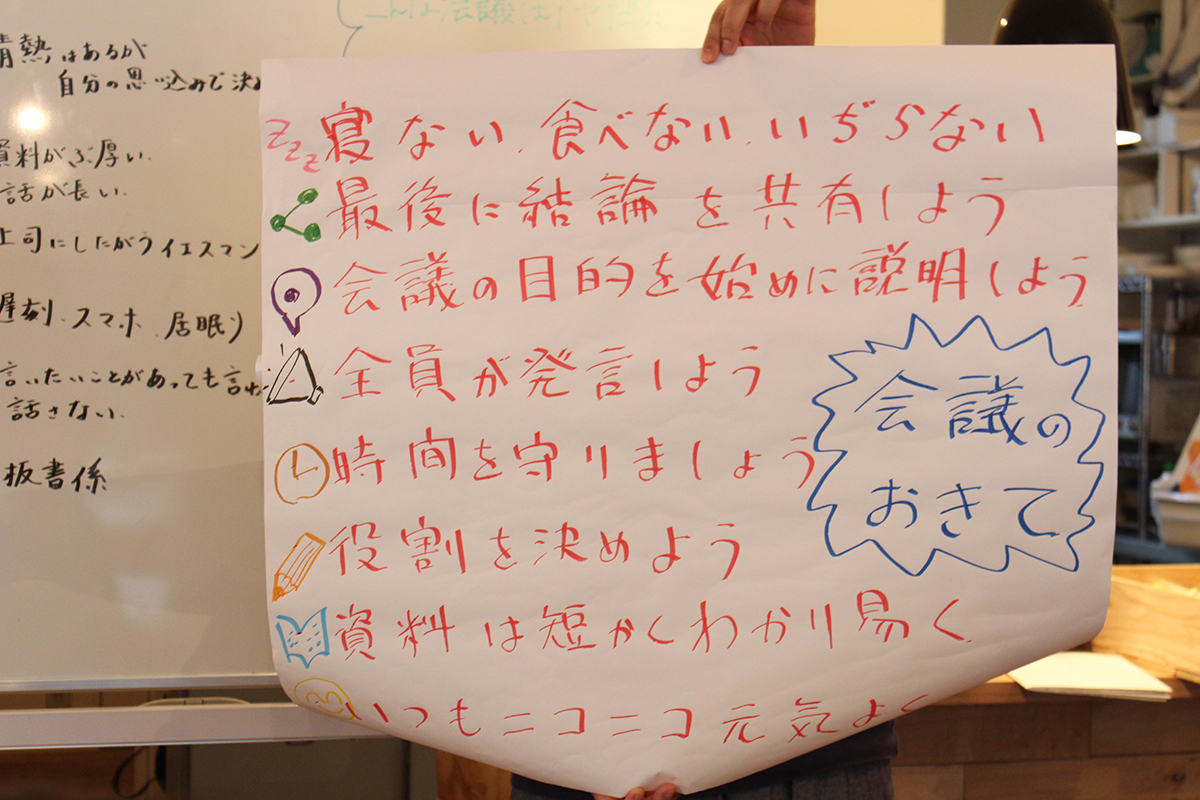 情熱はあるが
自分の思い込みで決め
資料がぶ厚い.
話が長い.
上司にしたがうイエスマン
遅刻、スマホ、居眠り
言いたいことがあっても言わ
話さない.
板書係
zzz 寝ない、食べない、いぢらない
最後に結論を共有しよう
会議の目的を始めに説明しよう
全員が発言しよう
時間を守りましょう
役割を決めよう
資料は短かくわかり易く
いつもニコニコ元気よく
会議の
おきて